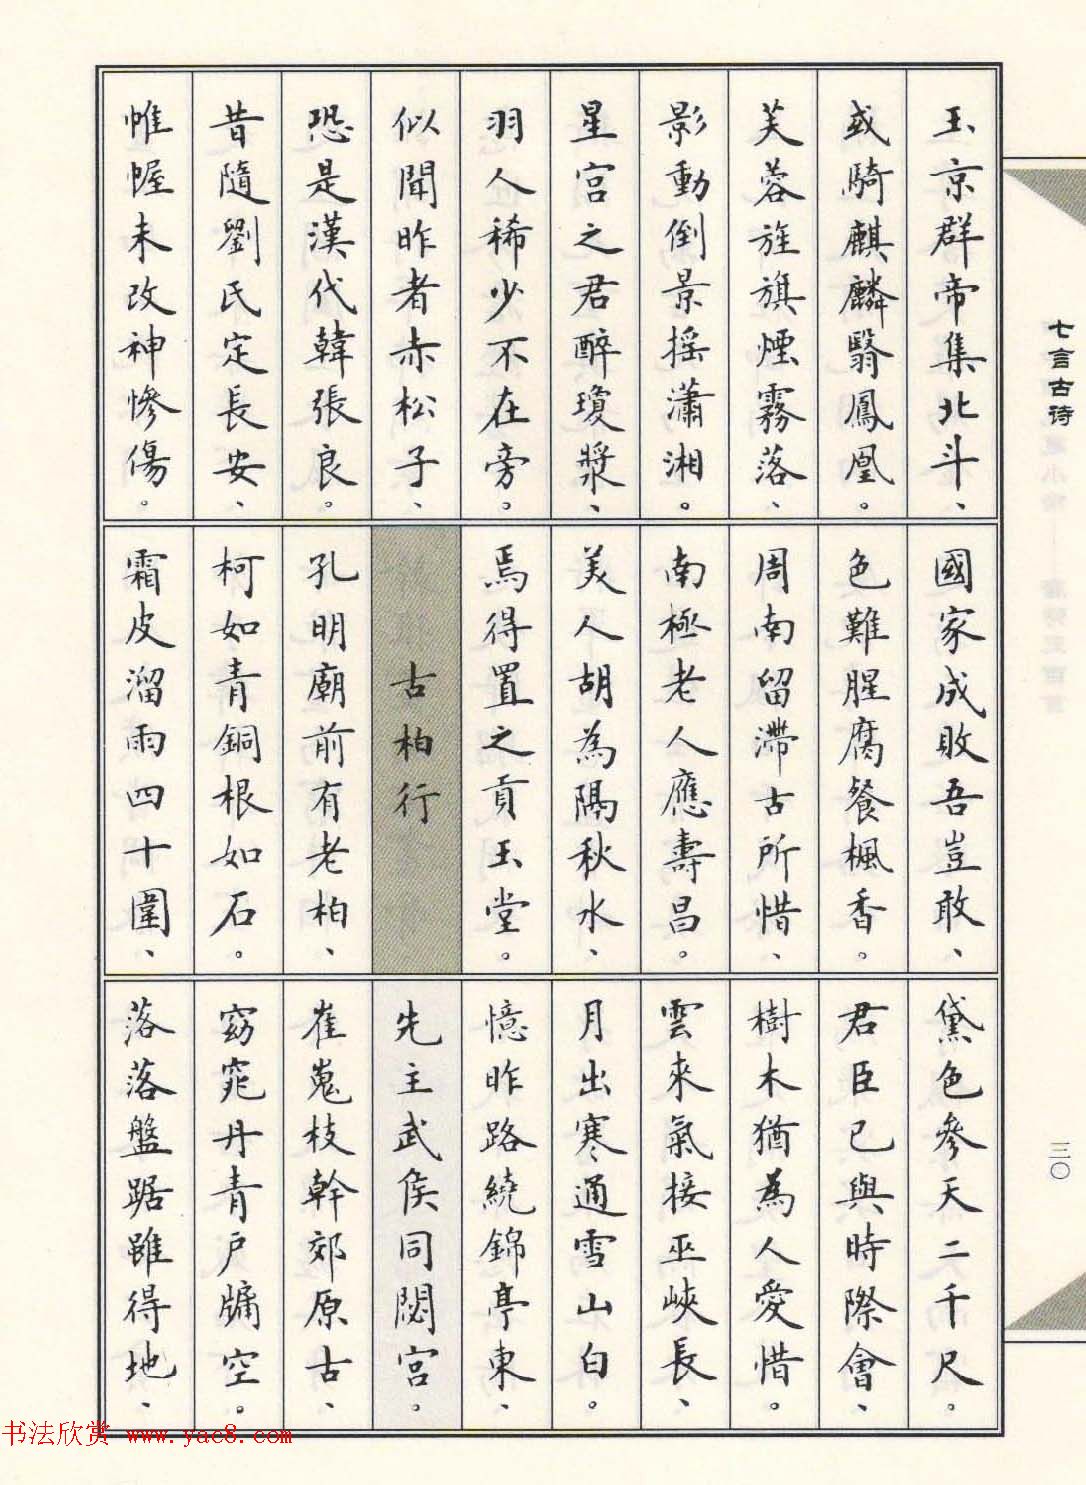 玉京群帝集北斗、
或騎麒麟翳鳳凰。
芙蓉旌旗煙霧落、
影動倒景搖瀟湘。
星宮之君醉瓊漿、
羽人稀少不在旁。
似聞昨者赤松子、
恐是漢代韓張良。
昔隨劉氏定長安、
帷幄未改神慘傷。
國家成敗吾豈敢、
色難腥腐餐楓香。
周南留滯古所惜、
南極老人應壽昌。
美人胡為隔秋水、
焉得置之貢玉堂。
古柏行
孔明廟前有老柏、
柯如青銅根如石。
霜皮溜雨四十圍、
黛色參天二千尺。
君臣已與時際會、
樹木猶為人愛惜。
雲來氣接巫峽長、
月出寒通雪山白。
憶昨路繞錦亭東、
先主武侯同閟宮。
崔嵬枝幹郊原古、
窈窕丹青戶牖空。
落落盤踞雖得地、
七言古诗
三〇
书法欣赏 www.yac8.com